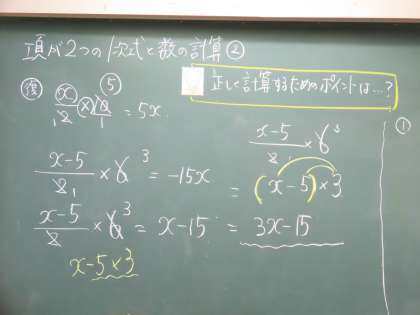 項が2つの1次式と数の計算②
正しく計算するためのポイントは…?
復 x/2 × 10/1 = 5x ⑤
(x-5)/2 × 6 3 = -15x
(x-5)/2 × 6 3 = x-15
x-5×3
(x-5)/2 × 6 3
= (x-5)×3
= 3x-15
①